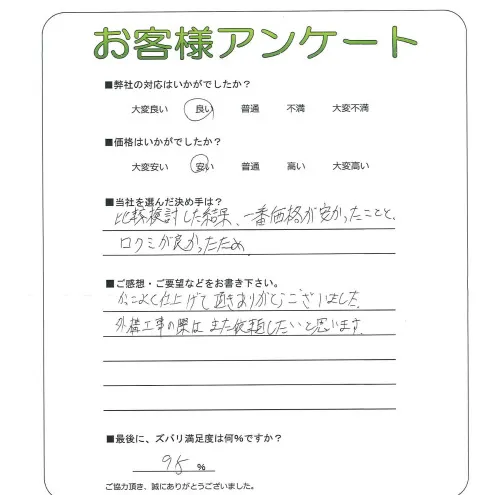 お客様アンケート
■弊社の対応はいかがでしたか？
大変良い 良い 普通 不満 大変不満
■価格はいかがでしたか？
大変安い 安い 普通 高い 大変高い
■当社を選んだ決め手は？
比較検討した結果、一番価格が安かったことと、
口クミが良かったため
■ご感想・ご要望などをお書き下さい。
かっこよく仕上げて頂きありがとうございました。
外構工事の際はまた依頼したいと思います。
■最後に、ズバリ満足度は何％ですか？
95 %
ご協力頂き、誠にありがとうございました。